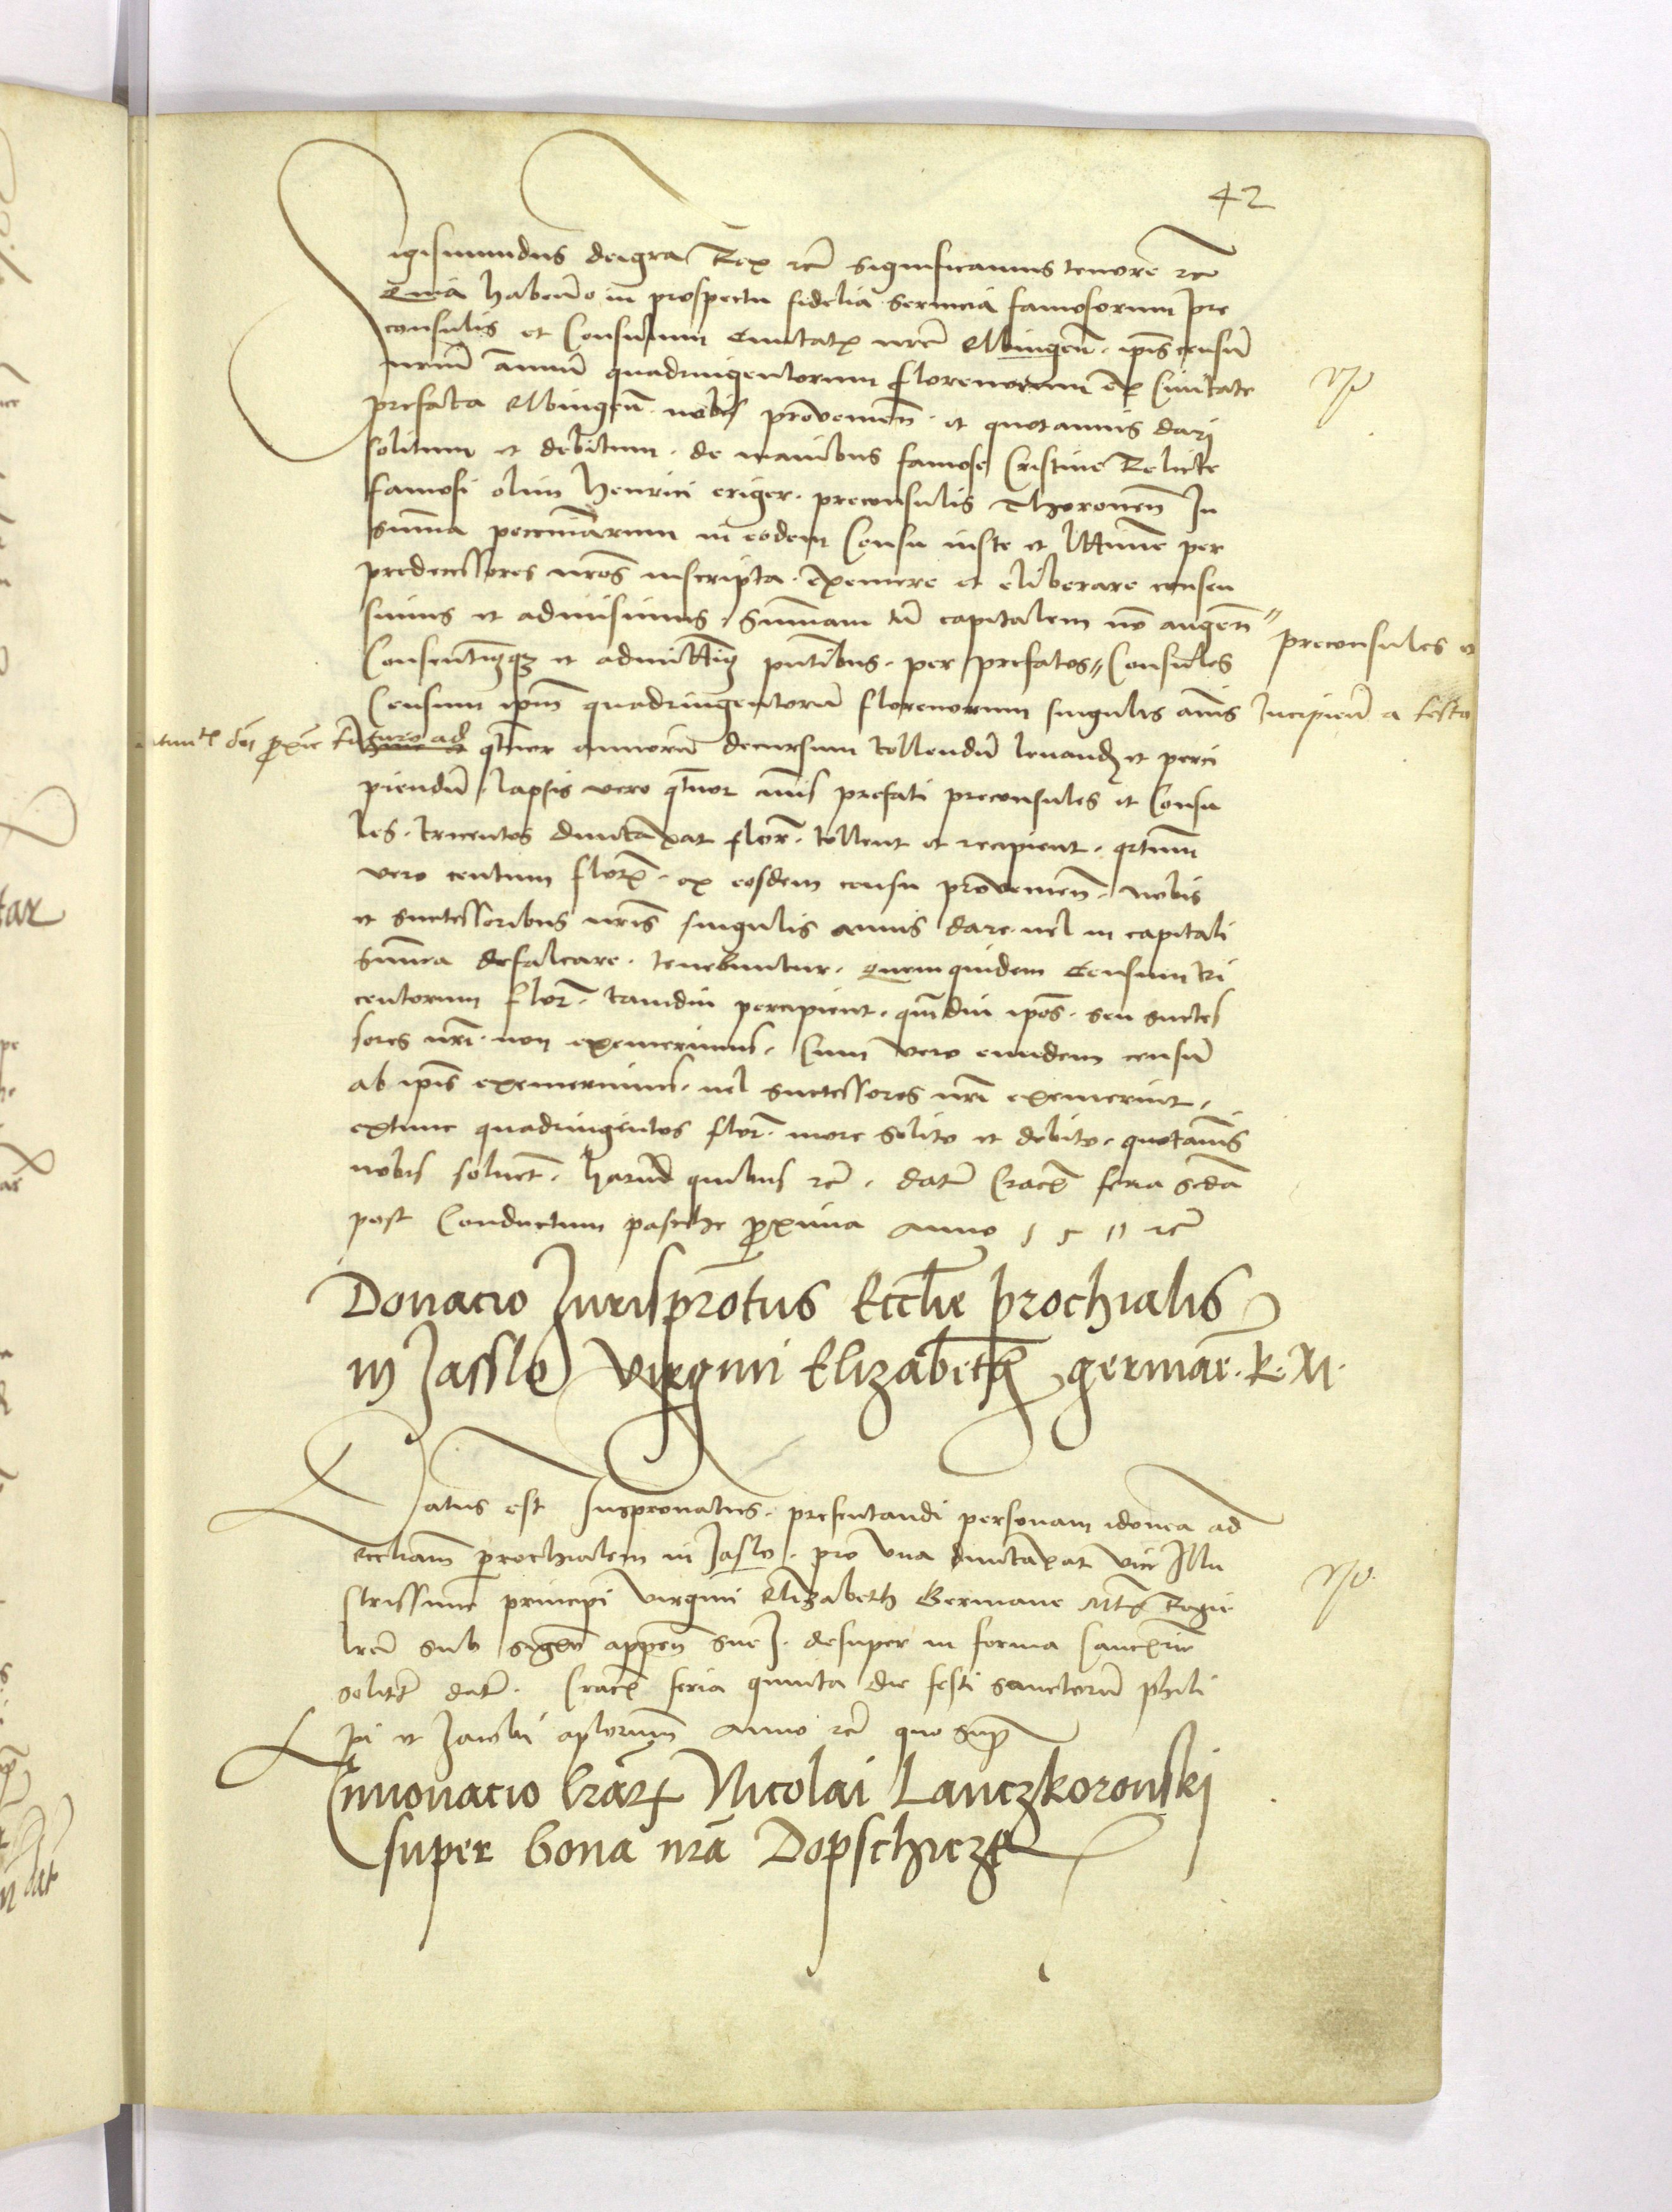 42
Sigismundus dei gra Rex etc significamus tenore etc
Quia habendo in prospectu fidelia servicia famosorum pre
consulis et Consulum Civitatis nre Elbingen. ipis censum
nrum annuu quadringentorum florenorum ex Civitate
prefata Elbingen. nobis provenien. et quotannis dari
solitum et debitum. de manibus famose Cristine Relicte
famosi olim Henrici eriger. preconsulis Thoronen In
summa pecuniarum in eodem Censu iuste et littime per
predecessores nros inscripta. eximere et eliberare consen
simus et admisimus. Summam tn capitalem no augen
Consentimusqz et admittimus pntibus. per prefatos // Consules
// preconsules et
Censum ipm quadringentorum florenorum singulis annis Incipien a festo
dni proxie futuro ad qtuor annoru decursum tollendu levand et perci
piendu. lapsis vero qtuor annis prefati preconsules et Consu
les. tricentos duntaxat flor. tollent et recipient. qrtum
vero centum flor. ex eodem censu provenien. nobis
et successoribus nris singulis annis dare vel in capitali
summa defalcare. tenebuntur. Quem quidem Censum tri
centorum flor. tamdiu percipient. qmdiu ipos. seu succes
sores nri non exemerimus. Cum vero eundem censu
ab ipis exemerimus. vel successores nri exemerint.
extunc quadringentos flor. more solito et debito. quotannis
nobis solvent. harum quibus etc. datum Crac feria scda
post Conductum pasche proxima Anno 1511 etc
Donacio Jurisprotus Ecclie prochialis
in Jasslo Virgini Elizabeth germane. R. M.
Datus est Juspronatus. presentandi personam idonea ad
eccliam prochialem in Jaslo. pro una duntaxat vice Illu
strissime principi virgini Elizabeth Germane Mtis Regie
lre sub sigo appen sue. desuper in forma Cancrie
solit dat. Crac feria quinta die festi sanctoru phili
pi et Jacobi aplorum Anno etc quo supra
Innovacio lrarum Nicolai Lanczkoronski
super bona nra Dopschicze